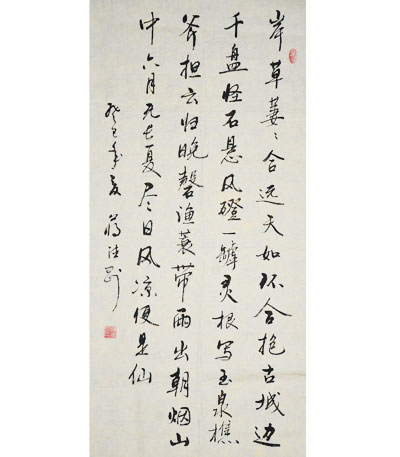 岸草萋〻合远天如环合抱古城边
千盘怪石悬风磴一罅灵根写玉泉樵
斧担云归晚磬渔蓑带雨出朝烟山
中六月无长夏尽日风凉便是仙
癸巳年夏蒋